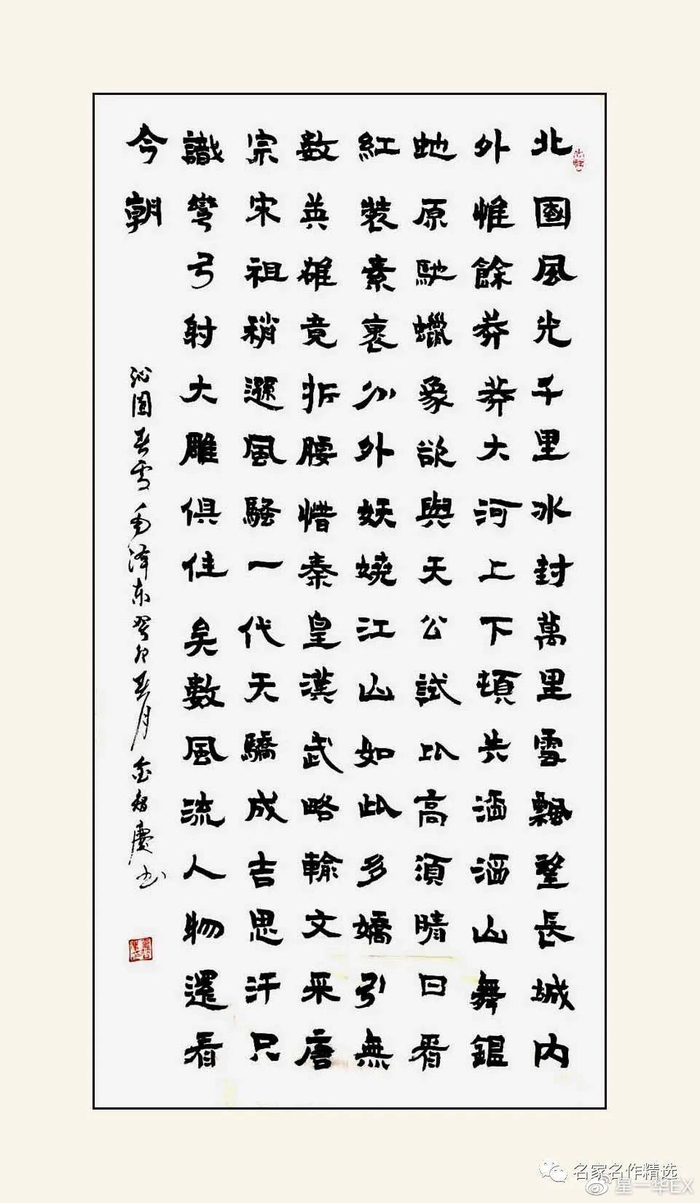 北國風光千里冰封萬里雪飄望長城内
外惟餘莽莽大河上下頓失滔滔山舞銀
虵原馳蠟象欲與天公試比高須晴日看
紅裝素裹分外妖嬈江山如此多嬌引無
數英雄竟折腰惜秦皇漢武略輸文采唐
宗宋祖稍遜風騷一代天驕成吉思汗只
識彎弓射大雕俱往矣數風流人物還看
今朝
沁園春雪毛泽东癸卯春月金慶书
名家名作精选
星一华EX